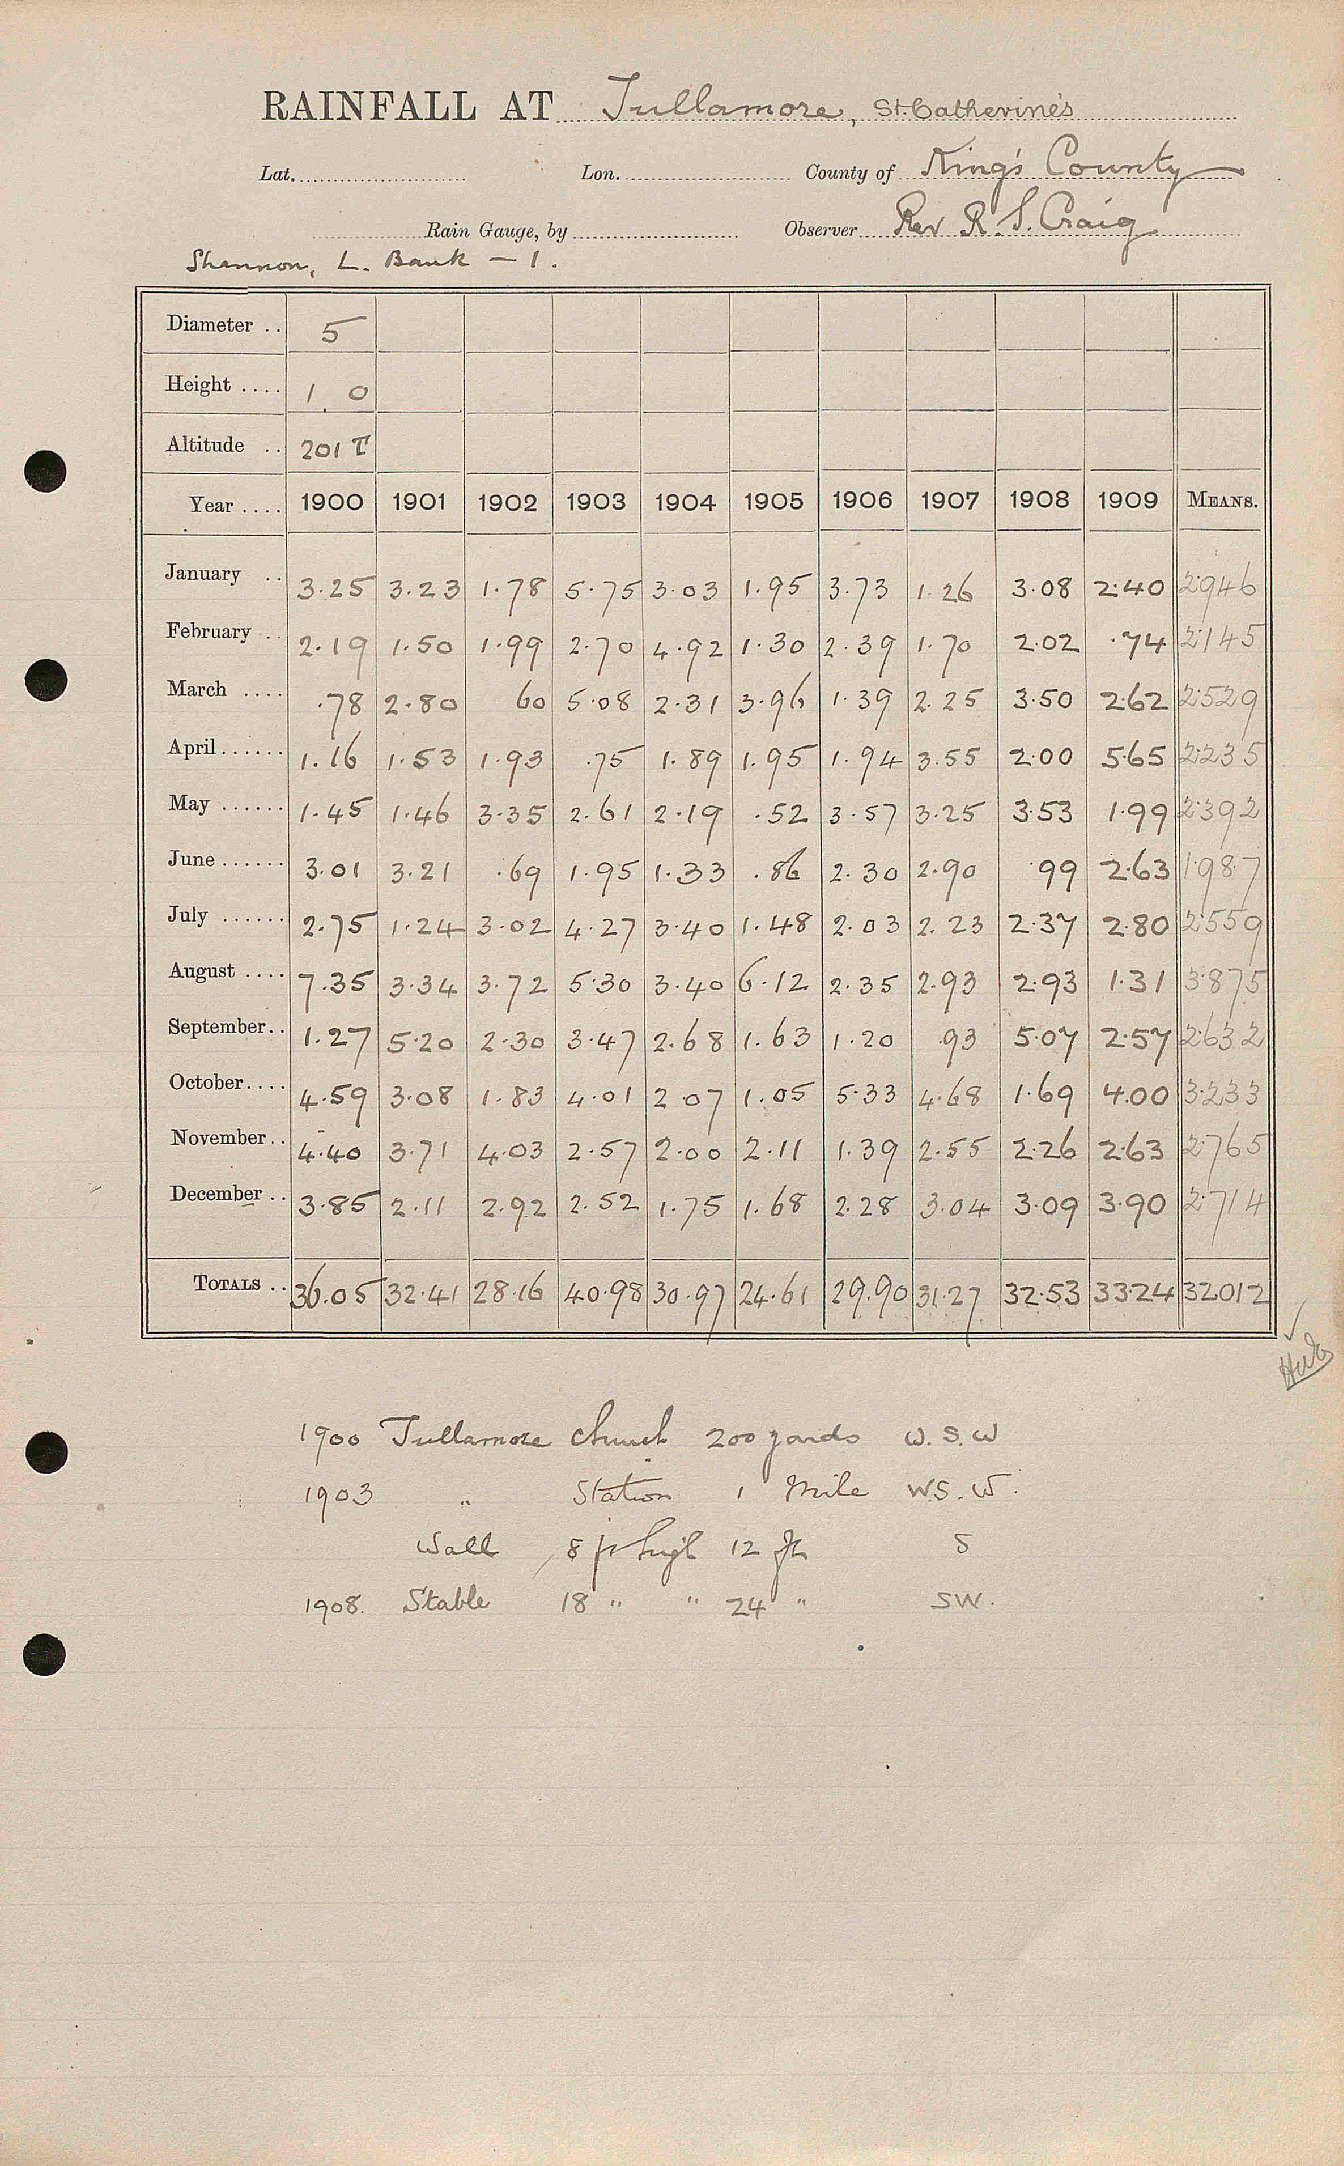 RAINFALL AT Tullamore, St. Catherine's
Lat. Lon. County of King's County
Rain Gauge, by Observer Rev R. S. Craig
Shannon, L. Bank — 1.
Diameter .. 5
Height .... 1 0
Altitude .. 201 T
Year .... 1900 1901 1902 1903 1904 1905 1906 1907 1908 1909 MEANS.
January .. 3.25 3.23 1.78 5.75 3.03 1.95 3.73 1.26 3.08 2.40 2.946
February .. 2.19 1.50 1.99 2.70 4.92 1.30 2.39 1.70 2.02 .74 2.145
March .... .78 2.80 60 5.08 2.31 3.96 1.39 2.25 3.50 2.62 2.529
April ...... 1.16 1.53 1.93 .75 1.89 1.95 1.94 3.55 2.00 5.65 2.235
May ...... 1.45 1.46 3.35 2.61 2.19 .52 3.57 3.25 3.53 1.99 2.392
June ...... 3.01 3.21 .69 1.95 1.33 .86 2.30 2.90 99 2.63 1.987
July ...... 2.75 1.24 3.02 4.27 3.40 1.48 2.03 2.23 2.37 2.80 2.559
August .... 7.35 3.34 3.72 5.30 3.40 6.12 2.35 2.93 2.93 1.31 3.875
September .. 1.27 5.20 2.30 3.47 2.68 1.63 1.20 .93 5.07 2.57 2.632
October .... 4.59 3.08 1.83 4.01 2.07 1.05 5.33 4.68 1.69 4.00 3.233
November .. 4.40 3.71 4.03 2.57 2.00 2.11 1.39 2.55 2.26 2.63 2.765
December .. 3.85 2.11 2.92 2.52 1.75 1.68 2.28 3.04 3.09 3.90 2.714
TOTALS .. 36.05 32.41 28.16 40.98 30.97 24.61 29.90 31.27 32.53 33.24 32.012
1900 Tullamore Church 200 yards W. S. W
1903 " Station 1 Mile W S. W.
Wall 8 ft high 12 ft S
1908. Stable 18 " " 24 " SW.